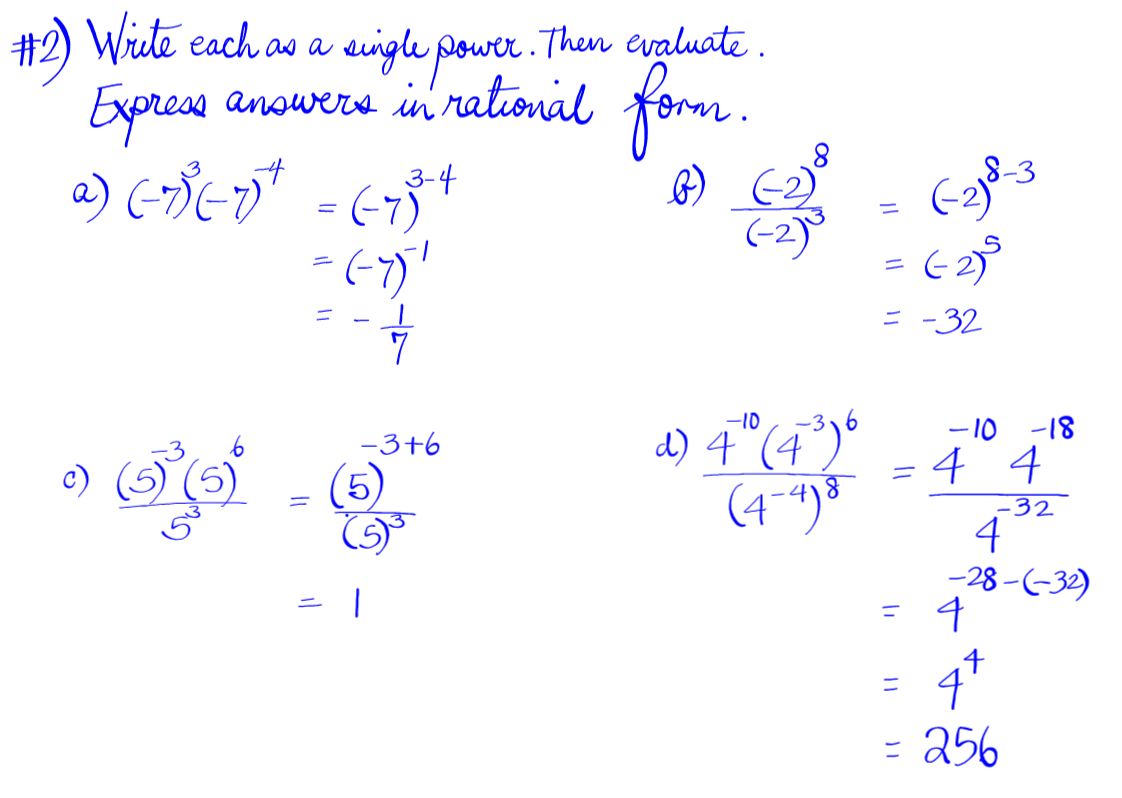 #2) Write each as a single power. Then evaluate.
Express answers in rational form.
a) (-7)³(-7)⁻⁴ = (-7)³⁻⁴
= (-7)⁻¹
= - 1/7
b) (-2)⁸/(-2)³ = (-2)⁸⁻³
= (-2)⁵
= -32
c) (5)⁻³(5)⁶/5³ = (5)⁻³⁺⁶/(5)³
= 1
d) 4⁻¹⁰(4⁻³)⁶/(4⁻⁴)⁸ = 4⁻¹⁰ 4⁻¹⁸/4⁻³²
= 4⁻²⁸⁻⁽⁻³²⁾
= 4⁴
= 256